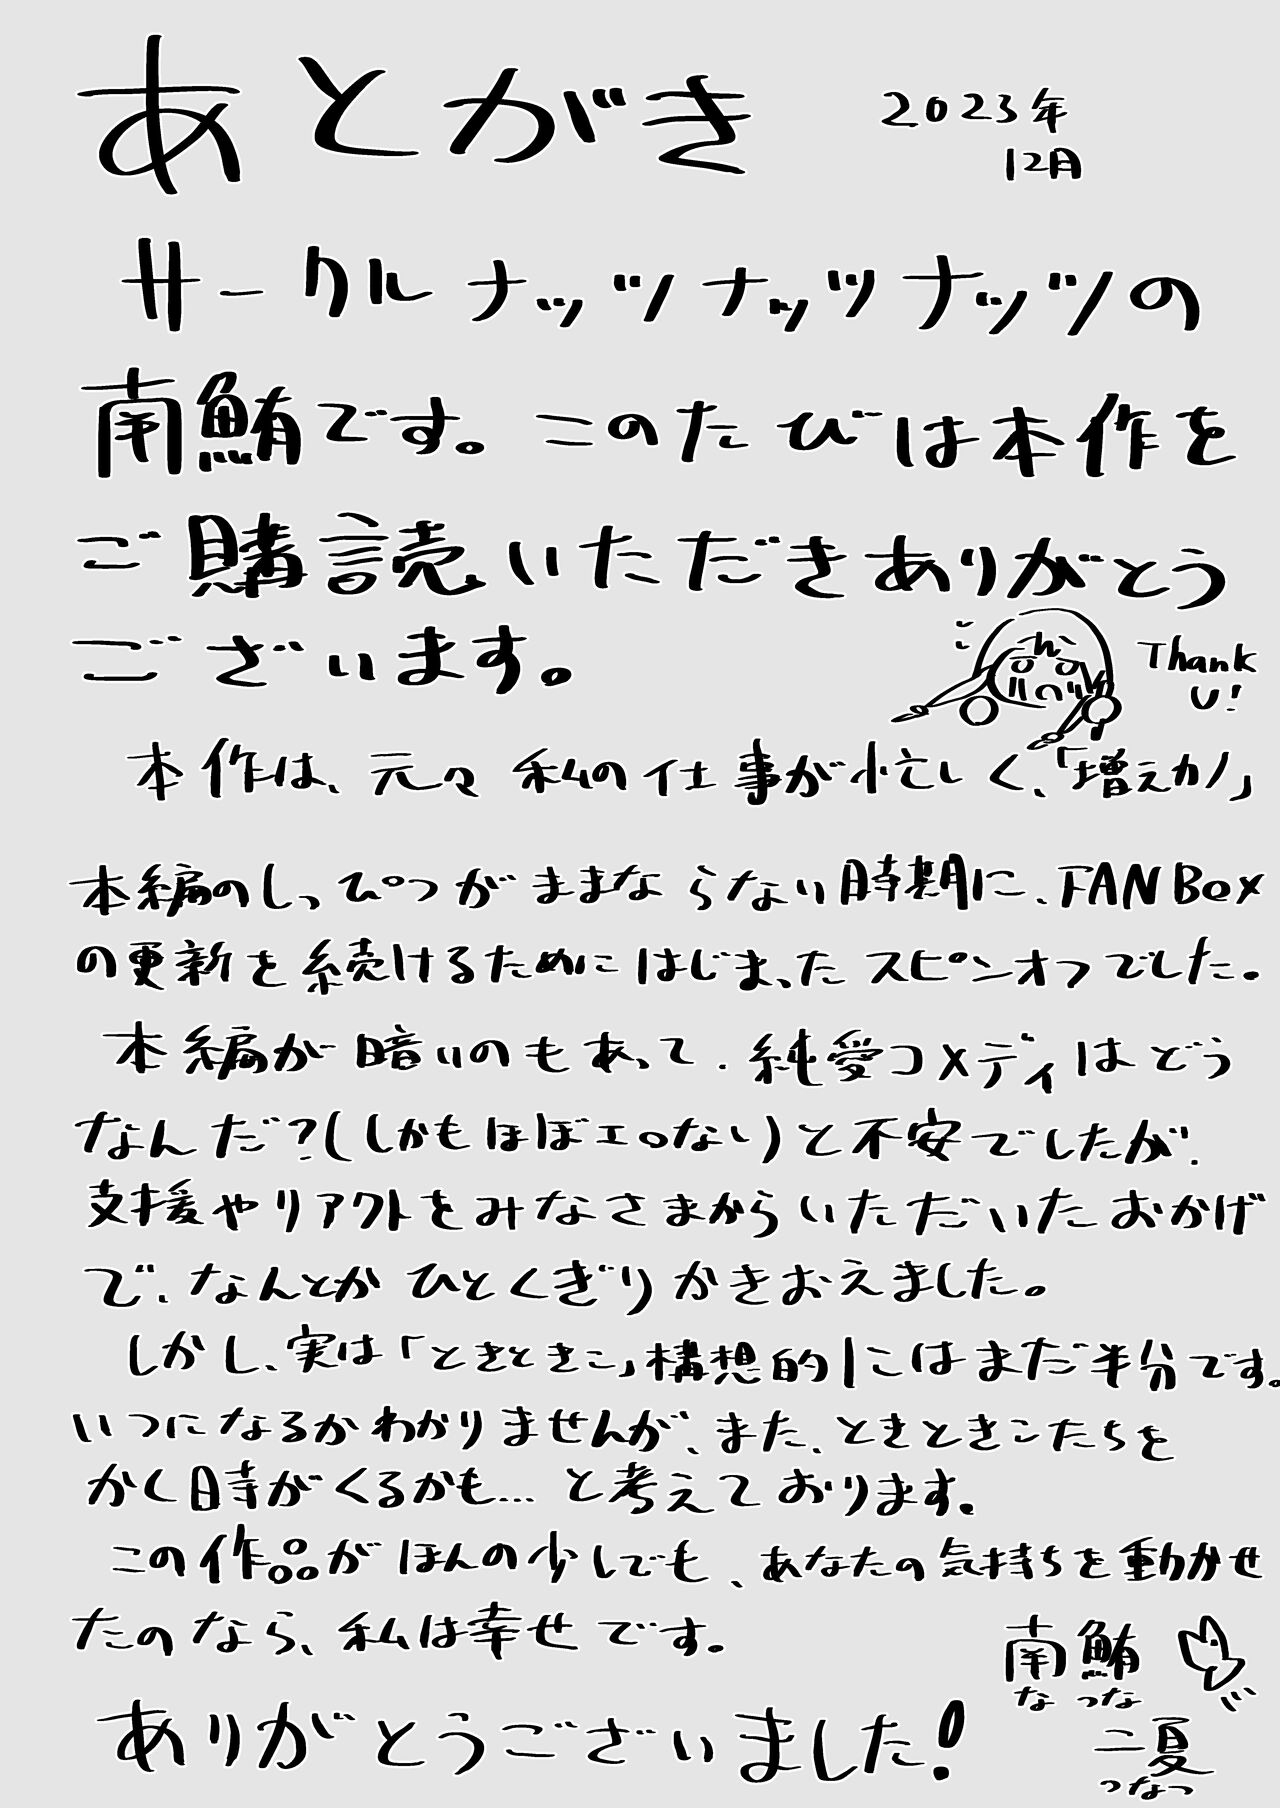 あとがき
2023年
12月
サークルナッツナッツナッツの
南鮪です。このたびは本作を
ご購読いただきありがとう
ございます。
Thank
U!
本作は、元々私の仕事が忙しく、「増えカノ」
本編のしっぴつがままならない時期に、FANBox
の更新を続けるためにはじまったスピンオフでした。
本編が暗いのもあって、純愛コメディはどう
なんだ?(しかもほぼエロない)と不安でしたが、
支援やリアクトをみなさまからいただいたおかげ
で、なんとかひとくぎりかきおえました。
しかし、実は「ときときこ」構想的にはまだ半分です。
いつになるかわかりませんが、また、ときときこたちを
かく時がくるかも…と考えております。
この作品がほんの少しでも、あなたの気持ちを動かせ
たのなら、私は幸せです。
南鮪
なつな
二夏
つなつ
ありがとうございました!